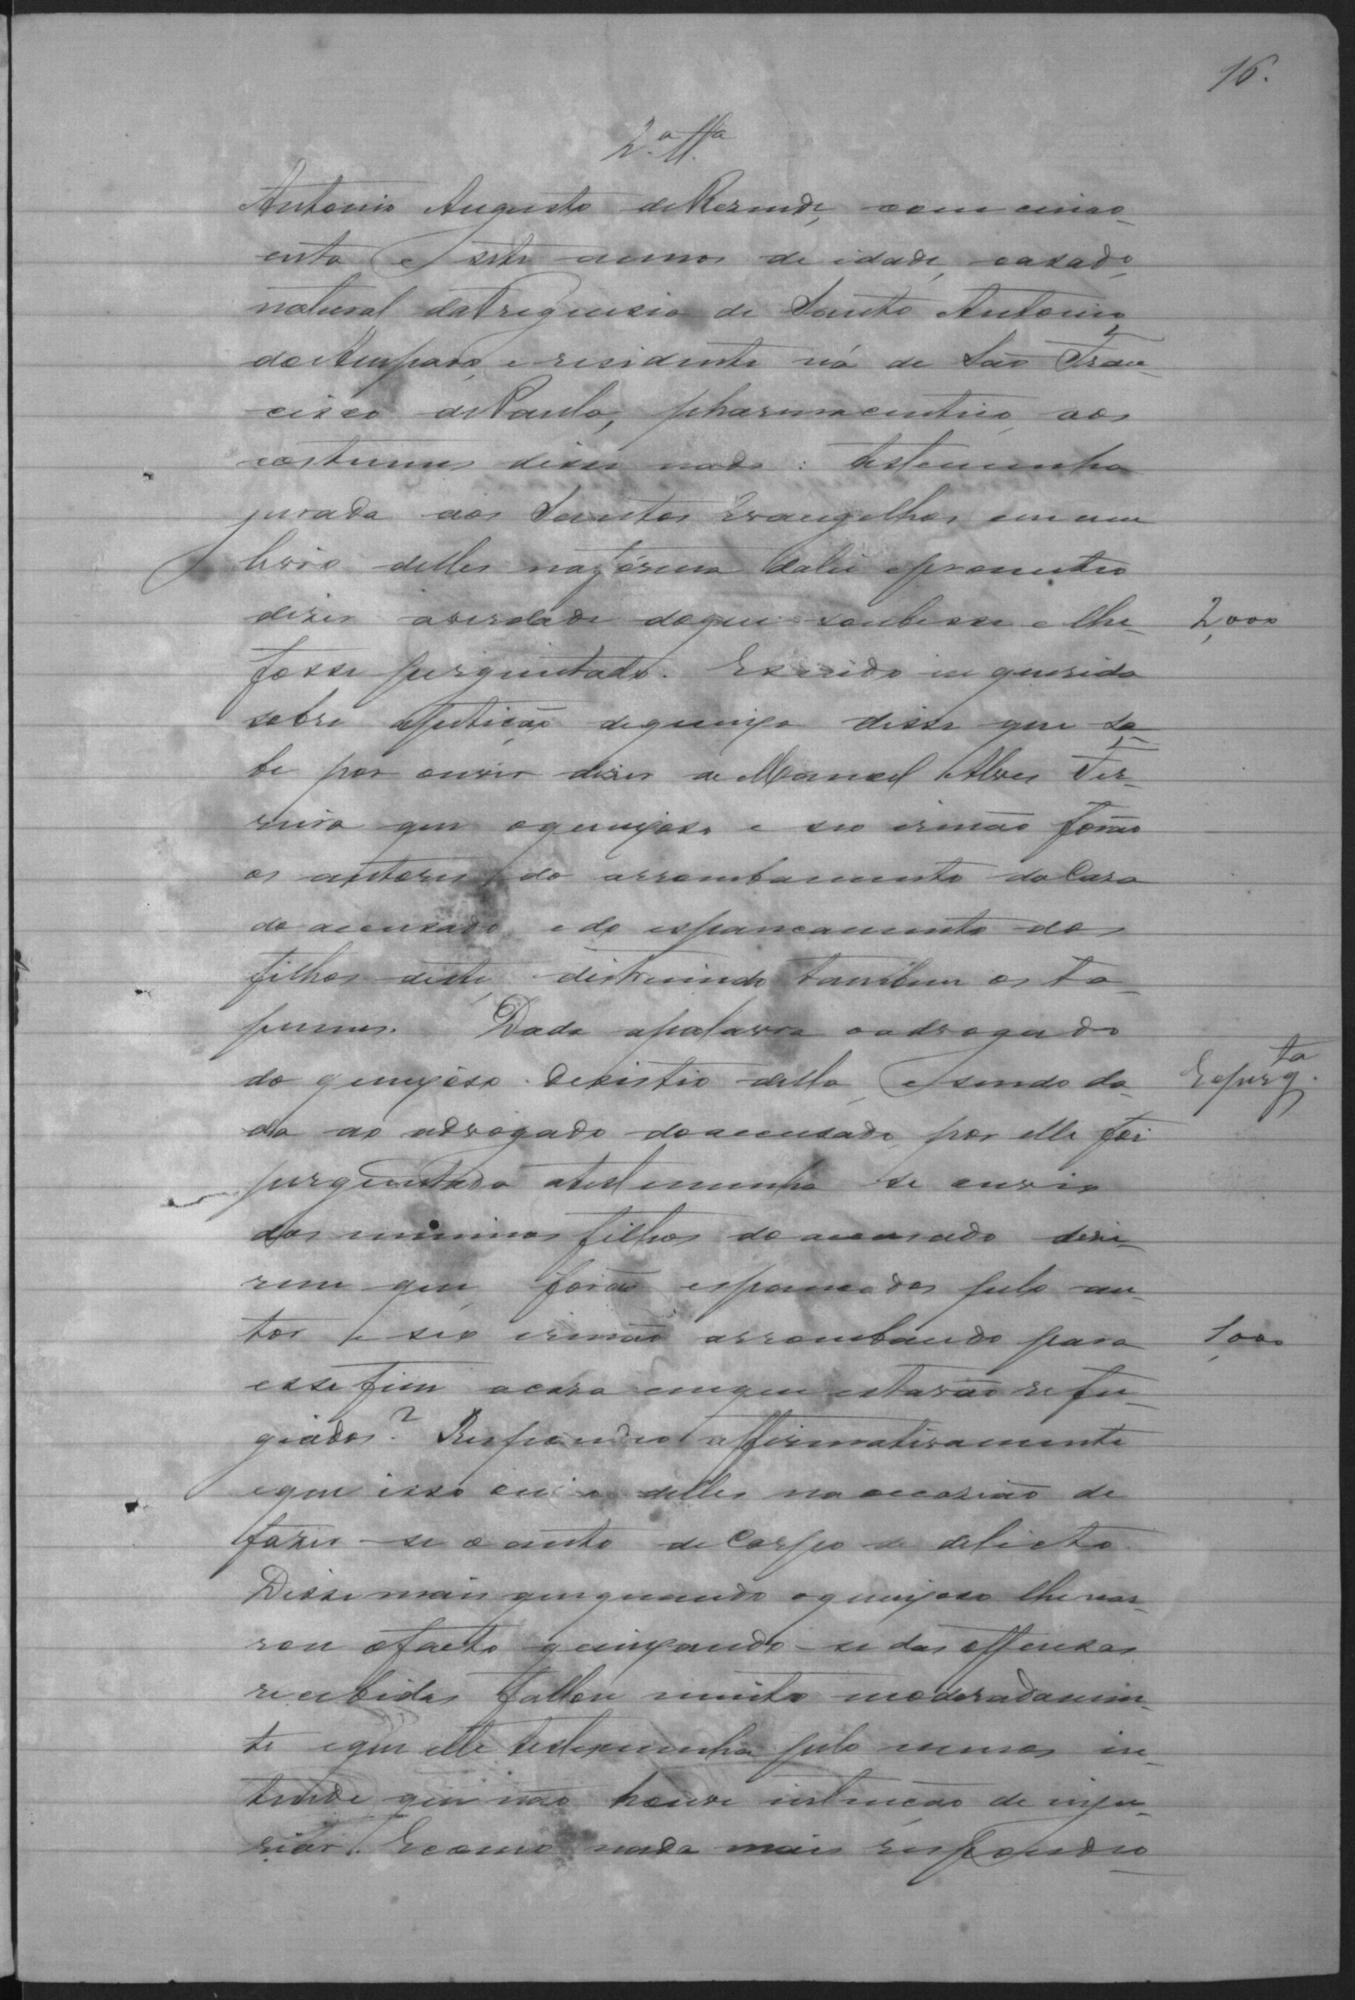 16.
2.ª Tª
Antonio Augusto de Resende, com cinco-
enta e sete annos de idade, casado,
natural da Freguesia de Santo Antonio
do Amparo e residente nó de São Fran-
cisco de Paula, pharmaceutico, aos
costumes disse nada: testemunha
jurada aos Santos Evangelhos em um
livro delles na forma da lei e prometteo
dizer averdade do que soubesse e lhe 2,000
fosse perguntado. E sendo inquerida
sobre apetição de queixa disse que sa-
be por ouvir dizer a Manoel Alves Fer-
reira que o queixoso e seo irmão forão
os autores do arrombamento da Casa
do accusado e do espancamento dos
filhos deste, destruindo tambem os ta-
pumes. Dada apalavra ao advogado
do queixoso desistio della, e sendo da- Reperg.ta
da ao advogado do accusado, por elle foi
perguntado atestemunha se ouvio
dos meninos filhos do accusado dize-
rem que forão espancados pelo au-
tor e seo irmão arrombando para 1,000
esse fim acasa em que estavão refu-
giados? Respondeo affirmativamente
e que isso ouvio delles na occasião de
fazer-se o auto de Corpo de delicto.
Disse mais que quando o queixoso lhe nar-
rou o facto queixando-se das offensas
recebidas fallou muito moderadamen-
te e que elle testemunha pelo menos in-
tende que não houve intenção de inju-
riar. E como nada mais respondeo